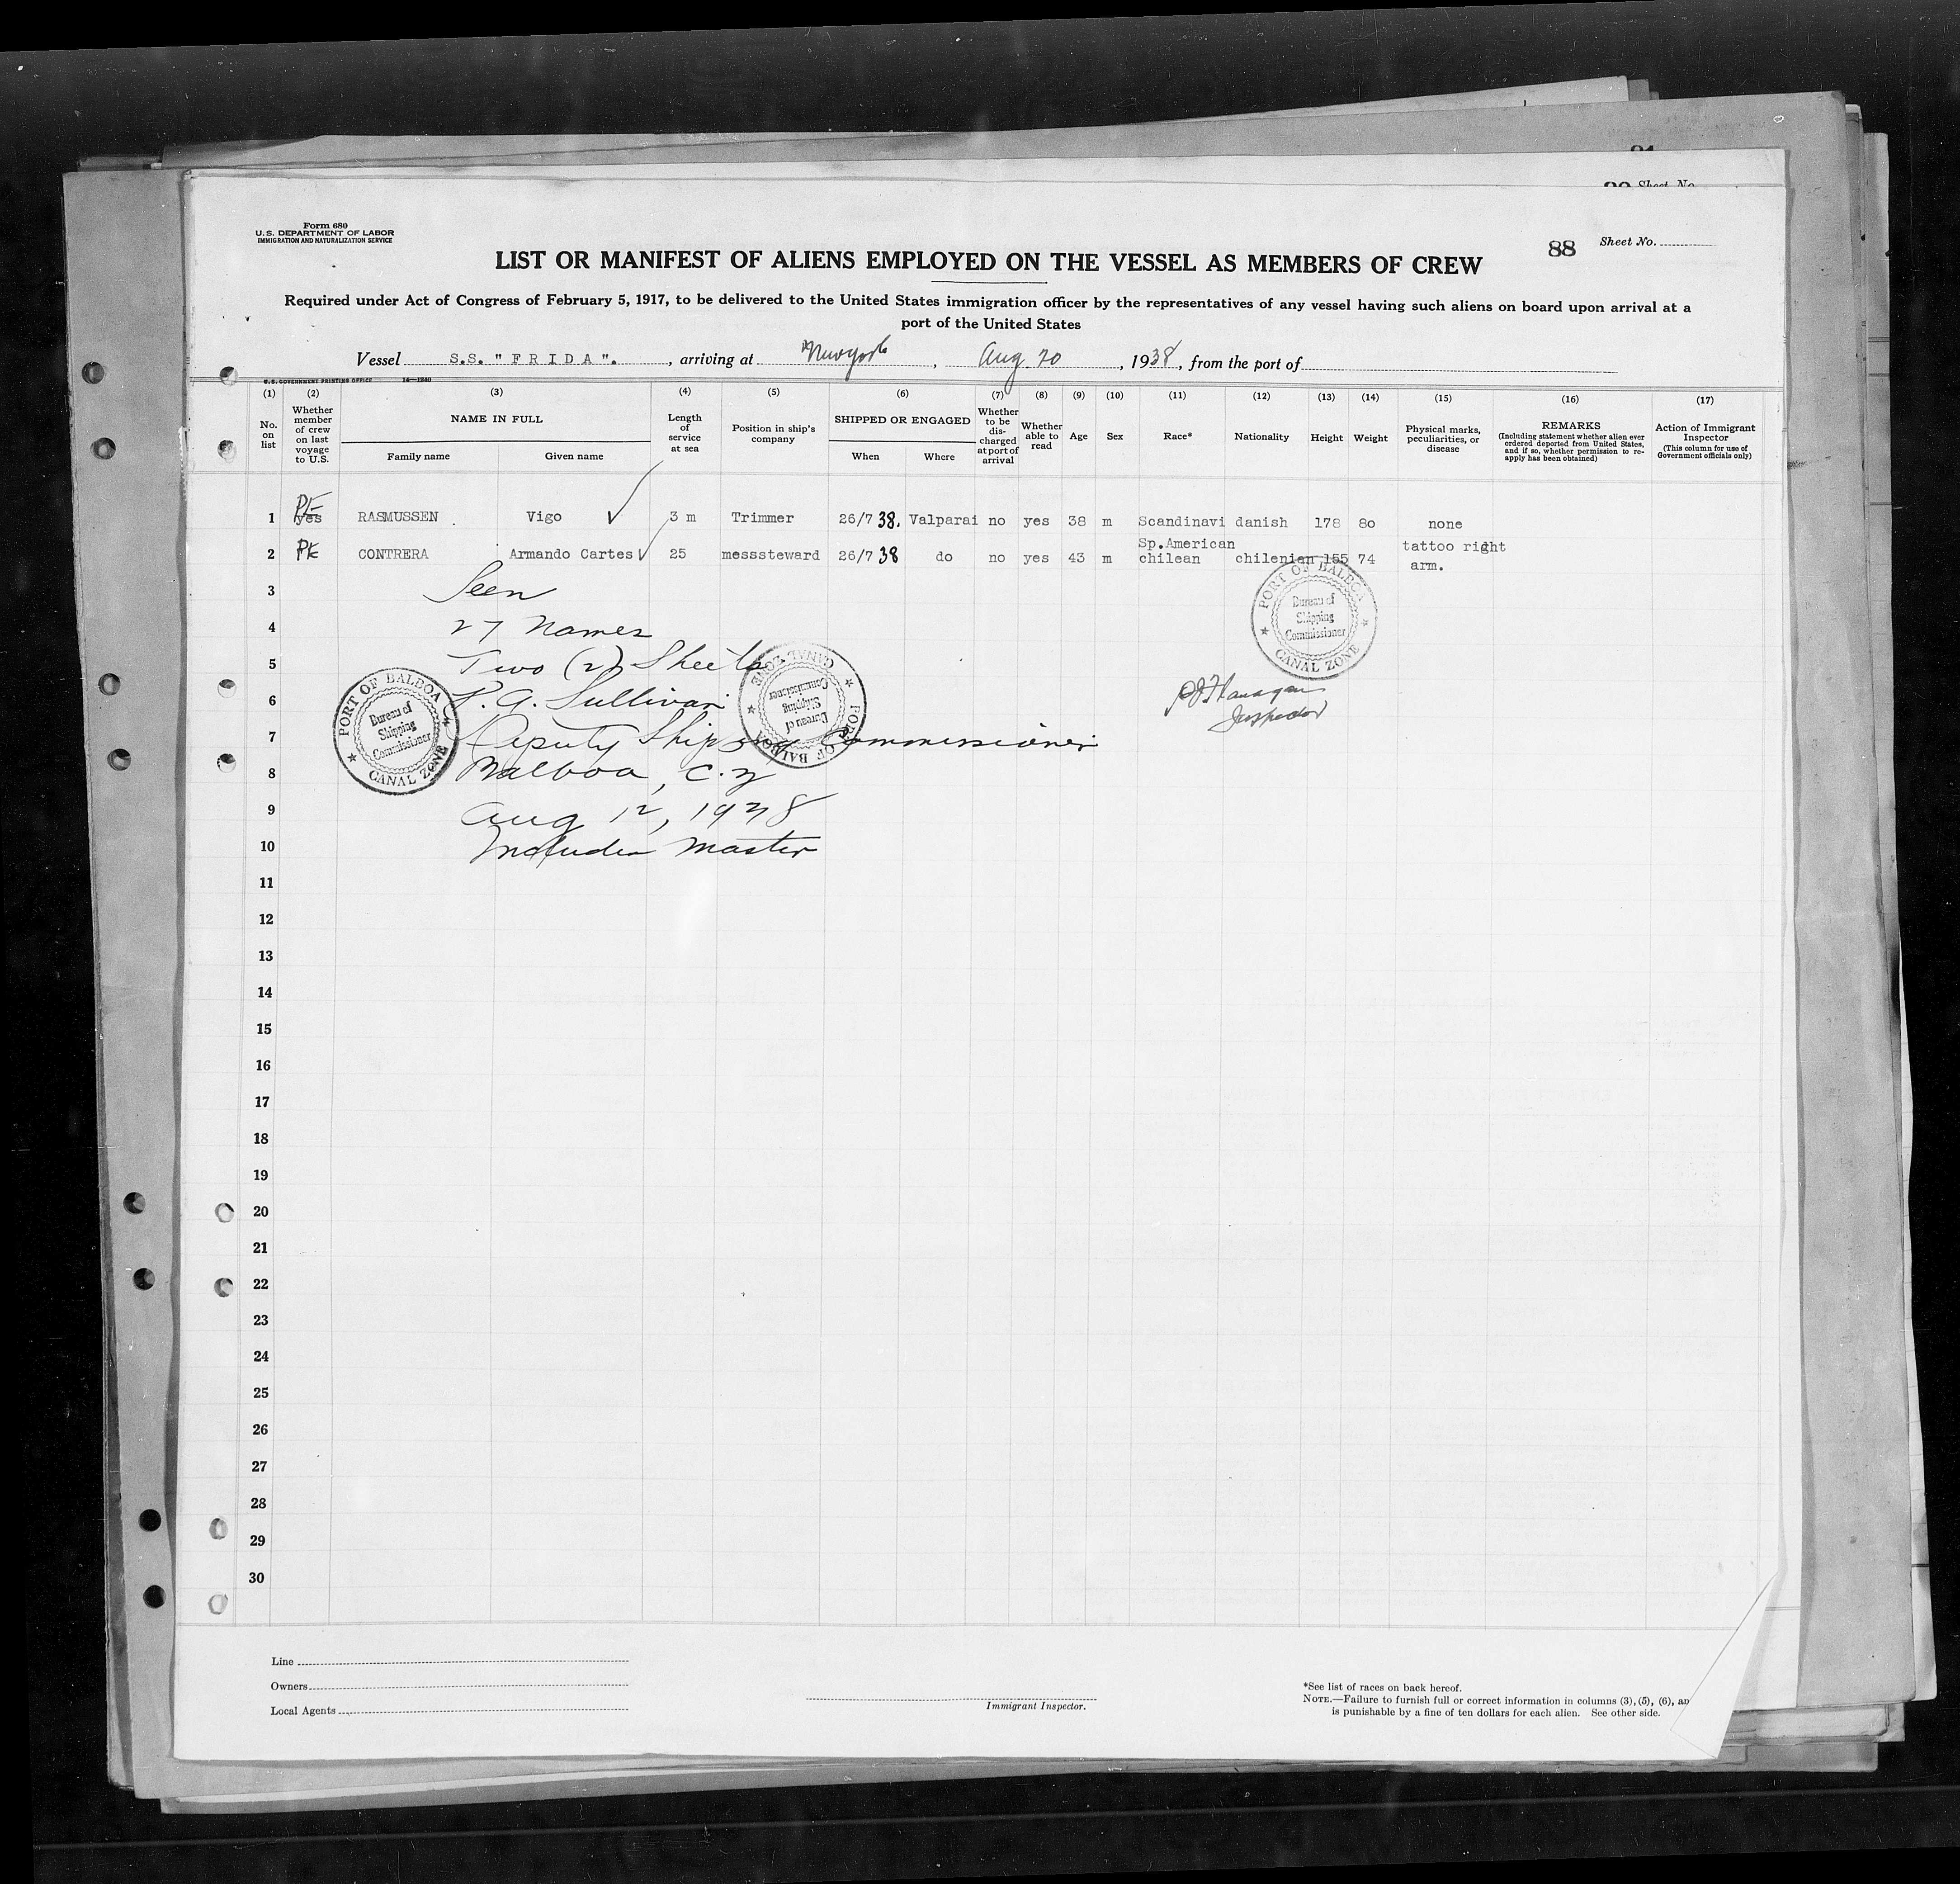 Sheet No.
Form 680
U.S. DEPARTMENT OF LABOR
IMMIGRATION AND NATURALIZATION SERVICE
88 Sheet No.
LIST OR MANIFEST OF ALIENS EMPLOYED ON THE VESSEL AS MEMBERS OF CREW
Required under Act of Congress of February 5, 1917, to be delivered to the United States immigration officer by the representatives of any vessel having such aliens on board upon arrival at a
port of the United States
Vessel S.S. "FRIDA". , arriving at New York , Aug 20 , 1938, from the port of
U.S. GOVERNMENT PRINTING OFFICE 14—1240
(1) (2) (3) (4) (5) (6) (7) (8) (9) (10) (11) (12) (13) (14) (15) (16) (17)
No. on list
Whether member of crew on last voyage to U.S.
NAME IN FULL
Family name Given name
Length of service at sea
Position in ship's company
SHIPPED OR ENGAGED
When Where
Whether to be discharged at port of arrival
Whether able to read
Age
Sex
Race*
Nationality
Height
Weight
Physical marks, peculiarities, or disease
REMARKS
(Including statement whether alien ever ordered deported from United States, and if so, whether permission to re-apply has been obtained)
Action of Immigrant Inspector
(This column for use of Government officials only)
1 yes RASMUSSEN Vigo 3 m Trimmer 26/7 38. Valparai no yes 38 m Scandinavi danish 178 80 none
2 CONTRERA Armando Cartes 25 messsteward 26/7 38 do no yes 43 m Sp.American chilean chilenian 155 74 tattoo right arm.
3 Seen
4 27 Names
5 Two (2) Sheets
6 P. A. Sullivan
7 Deputy Shipping Commissioner
8 Balboa, C.Z
9 Aug 12, 1938
10 Includes Master
PORT OF BALBOA
Bureau of
Shipping
Commissioner
CANAL ZONE
PORT OF BALBOA
Bureau of
Shipping
Commissioner
CANAL ZONE
PORT OF BALBOA
Bureau of
Shipping
Commissioner
CANAL ZONE
Flanagan
Inspector
11
12
13
14
15
16
17
18
19
20
21
22
23
24
25
26
27
28
29
30
Line
Owners
Local Agents
Immigrant Inspector.
*See list of races on back hereof.
NOTE.—Failure to furnish full or correct information in columns (3), (5), (6), an
is punishable by a fine of ten dollars for each alien. See other side.